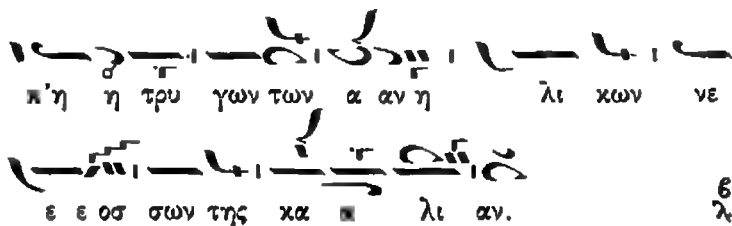 η τρυ γων των α αν η λι κων νε
ε ε οσ σων της κα λι αν.